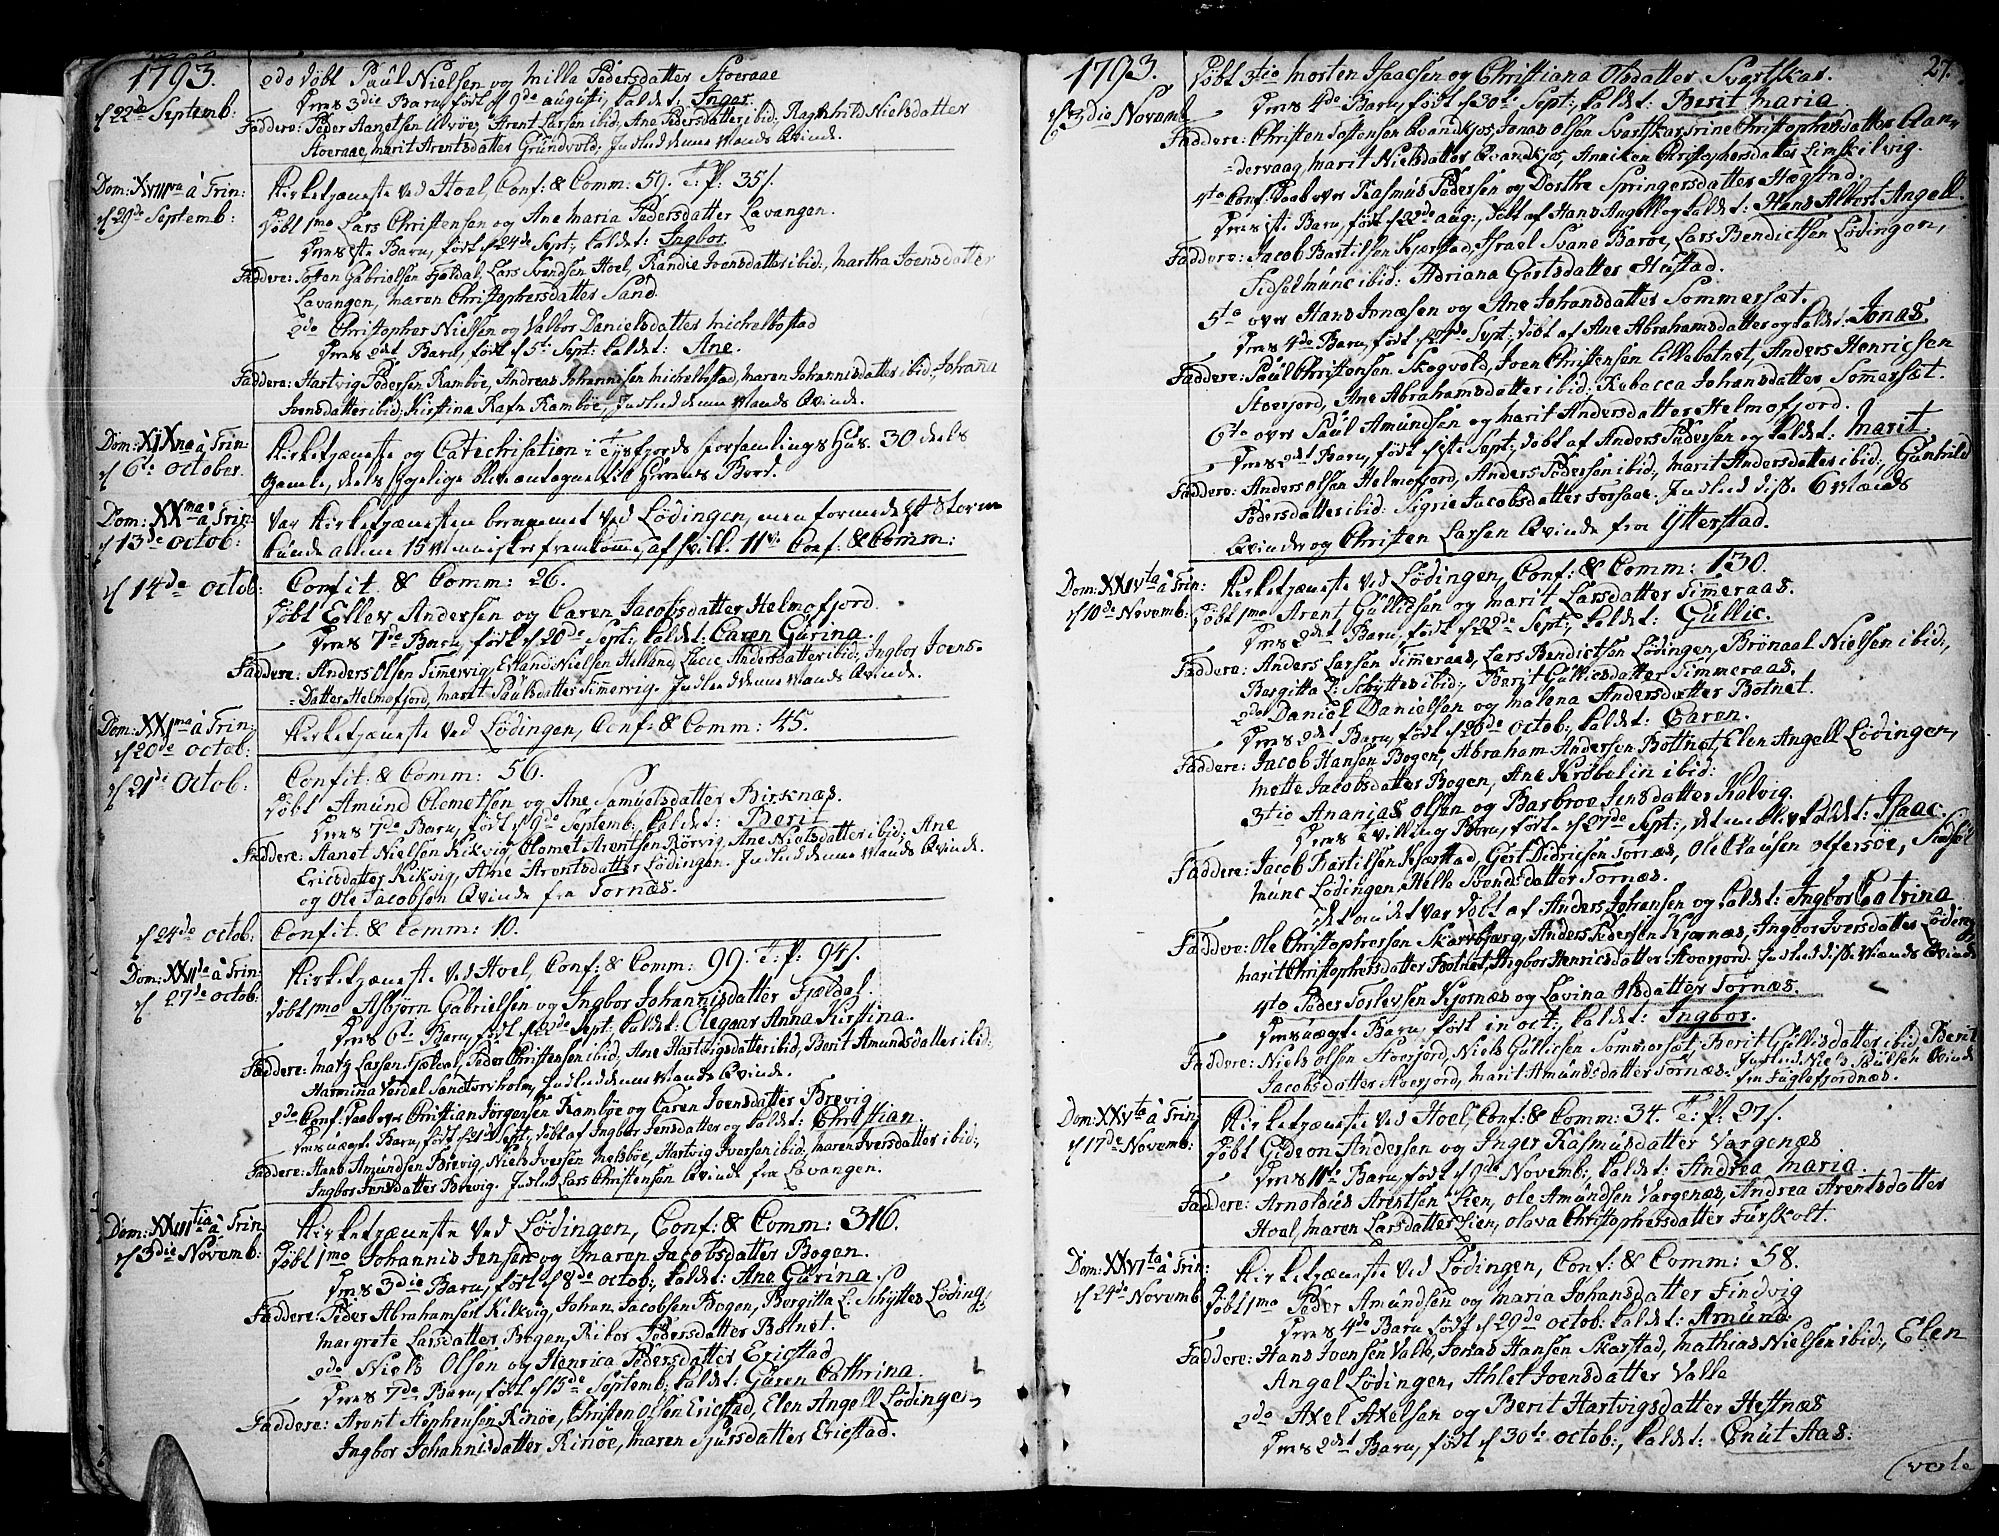 1793.
d 22de Septemb:
2do døbt Paul Nielsen og Milla Pedersdatter Stoeraae
Deres 3die Barn, født d 9de augusti, kaldet: Inger.
Faddere: Peder Aanetsen Ulvøe, Arent Larsen ibid; Ane Pedersdatter ibid; Ragnhild Nielsdatter
Stoeraae, Marit Arentsdatter Grundvold; Indled denne Mands Qvinde.
Dom: XVIIIva à Trin:
d 29de Septemb:
Kirketjæneste ved Hoel, Conf: & Comm: 59. T: P: 35/.
Døbt 1mo Lars Christensen og Ane Maria Pedersdatter Lavangen.
Deres 1ste Barn, født d 24de Sept: kaldet: Ingbor.
Faddere: Tosten Gabrielsen Fjeldal, Lars Svendsen Hoel, Randie Joensdatter ibid:, Martha Joensdatter
Lavangen, Maren Christophersdatter Sand.
2do Christopher Nielsen og Valbor Danielsdatter Michelbostad
Deres 2det Barn, født d 5te Sept: kaldet: Ane.
Faddere: Hartvig Pedersen Rambøe, Andreas Johannisen Michelbostad, Maren Johannisdatter ibid:, Johanna
Joensdatter ibid; Kirstina Rafn Rambøe, Indled denne Mands Qvinde.
Dom: XIXna à Trin:
d 6te October.
Kirketjæneste og Catechisation i Tysfjords forsamlings Hus. 30 deels
gamle, deels sygelige blev antagne til Herrens Bord.
Dom: XXma à Trin:
d 13de Octob:
Var Kirketjænesten berammet ved Lødingen, men formedelst Storm
kunde alene 15 Mennisker fremkomme, af hvilke 11ve Conf: & Comm:
d 14de Octob:
Confit. & Comm: 26.
Døbt Ellev Andersen og Caren Jacobsdatter Helmofjord.
Deres 7de Barn, født d 20de Sept: kaldet: Caren Gurina.
Faddere: Anders Olsen Timervig, Erland Nielsen Helland, Lucie Andersdatter ibid; Ingbor Joens-
=Datter Helmofjord, Marit Paulsdatter Timervig. Indled denne Mands Qvinde.
Dom: XXIma à Trin:
d 20de Octob:
Kirketjæneste ved Lødingen, Conf: & Comm: 45.
d 21de Octob:
Confit: & Comm: 56.
Døbt Amund Clemetsen og Ane Samuelsdatter Birknæs.
Deres 7de Barn, født d 9de Septemb: kaldet: Berit
Faddere: Aanet Nielsen Kikvig, Clomet Arentsen Rørvig, Ane Nielsdatter ibid; Ane
Ericsdatter Kikvig, Ane Arentsdatter Lødingen. Indled denne Mands Qvinde.
og Ole Jacobsen Qvinde fra Tornæs.
d 24de Octob:
Confit. & Comm: 10.
Dom: XXIIda à Trin:
d 27de Octob:
Kirketjæneste ved Hoel, Conf: & Comm: 99. T: P: 94/.
Døbt 1mo Asbjørn Gabrielsen og Ingbor Johannisdatter Fjældal.
Deres 6te Barn, født d 22de Sept: kaldet: Olegaar Anna Kirstina.
Faddere: Matz Larsen Fjældal, Peder Christensen ibid; Ane Hartvigsdatter ibid, Berit Amundsdatter ibid:
Harmina Veidel Sandtorvholm, Indled denne Mands Qvinde.
2do Conf: Daab over Christian Jørgensen Rambøe og Caren Joensdatter Brevig
Deres uægte Barn, født d 21de Sept: døbt af Ingbor Jensdatter og kaldet: Christian.
Faddere: Hans Amundsen Brevig, Niels Iversen Melsbøe, Hartvig Iversen ibid, Maren Iversdatter ibid:,
Ingbor Jensdatter Brevig. Indled Lars Christensen Qvinde fra Lavangen.
Dom: XXIIItia à Trin
d 3die Novemb:
Kirketjæneste ved Lødingen, Conf: & Comm: 316.
Døbt 1mo Johannis Jensen og Maren Jacobsdatter Bogen.
Deres 3die Barn, født d 8de Octob:, kaldet: Ane Gurina.
Faddere: Peder Abrahamsen Kilkvig, Johan Jacobsen Bogen, Borgitta L: Schyttes Løding,
Margrete Larsdatter Bogen, Ribor Pedersdatter Botnet.
2do Niels Olsen og Henrica Pedersdatter Ericstad
Deres 7de Barn, født d 15de Septemb: kaldet: Guren Cathrina.
Faddere: Arent Stephensen Rinøe, Christen Olsen Ericstad, Elen Angell Lødingen,
Ingbor Johannisdatter Rinøe, Maren Sjursdatter Ericstad.
1793.
27.
d 3die Novemb
Døbt 3tio Morten Isaacsen og Christiana Olsdatter Svartskar.
Deres 4de Barn, født d 30te Sept: kaldet: Berit Maria
Faddere: Christen Tostensen Qvandkjos, Jonas Olsen Svartskar, Trine Christophersdatter Ran-
=dervaag, Marit Nielsdatter Qvandkjos, Anniken Christophersdatter Limskilvig.
4to Conf: Daab over Rasmus Pedersen og Dorthe Springersdatter Hægstad.
Deres 1ste Barn, født d 23de aug:, døbt af Hans Angell og kaldet: Hans Albert Angell.
Faddere: Jacob Bartilsen Kjærstad, Israel Svane Barøe, Lars Bendictsen Lødingen,
Sidsel Munc ibid: Adriana Gertsdatter Hustad.
5to over Hans Jonæsen og Ane Johansdatter Sommersæt.
Deres 4de Barn, født d 24de Sept: døbt af Ane Abrahamsdatter og kaldet: Jonas.
Faddere: Paul Christensen Skogvold, Joen Christensen Lillebotnet, Anders Henricsen
Stoerjord, Ane Abrahamsdatter ibid: Rebacca Johansdatter Sommersæt.
6to over Paul Amundsen og Marit Andersdatter Helmofjord.
Deres 2det Barn, født d 1ste Sept: døbt af Anders Pedersen og kaldet: Marit.
Faddere: Anders Olsen Helmofjord, Anders Pedersen ibid:, Marit Andersdatter ibid:, Gunhild
Pedersdatter ibid: Sigrie Jacobsdatter Forsaae. Indled disse 6 Mænds
Qvinder og Christen Larsen Qvinde fra Ytterstad.
Dom: XXIVta à Trin:
d 10de Novemb:
Kirketjæneste ved Lødingen, Conf: & Comm: 130.
Døbt 1mo Arent Gullicsen og Marit Larsdatter Timeraas.
Deres 2det Barn, født d 22de Sept: kaldet: Gullic.
Faddere: Anders Larsen Timeraas, Lars Bendictsen Lødingen, Brønaal Nielsen ibid:,
Borgitta L: Schyttes ibid:, Berit Gullicsdatter Timmeraas.
2do Daniel Danielsen og Malena Andersdatter Botnet.
Deres 2det Barn, født d 26de Octob: kaldet: Caren.
Faddere: Jacob Hansen Bogen, Abraham Andersen Bottnet, Elen Angell Lødingen,
Mette Jacobsdatter Bogen, Ane Krøbelin ibid:
3tio Ananias Olsen og Barbroe Jensdatter Kalvig.
Deres Tvilling Børn, født d 27de Sept:, det ene blev kaldet: Isaac.
Faddere: Jacob Bartilsen Kjærstad, Gert Didricsen Tornæs, Ole Clausen Offersøe, Sidsel
Munc Lødingen, Helle Svendsdatter Tornæs.
Det andet var døbt af Anders Johansen og kaldet: Ingbor Catrina
Faddere: Ole Christophersen Skarvbjerg, Anders Pedersen Kjornæs, Ingbor Iversdatter Løding
Marit Christophersdatter Botnet, Ingbor Henricsdatter Stoerjord. Indled disse Mænds Qvinde
4to Peder Torlevsen Kjornæs og Lavina Olsdatter Tornæs.
Deres uægte Barn, født in Oct:, kaldet: Ingbor.
Faddere: Niels Olsen Stoerjord, Niels Gullicsen Sommersæt, Berit Gullicsdatter ibid, Berit
Jacobsdatter Stoerjord, Marit Amundsdatter Tornæs. Indled Niels Paulsen Qvinde
fra Fuglefjordnæs.
Dom: XXVta à Trin:
d 17de Novemb:
Kirketjæneste ved Hoel, Conf: & Comm: 34. T: P: 27/.
Døbt Gideon Andersen og Inger Rasmusdatter Vargenæs
Deres 11te Barn, født d 9de Novemb: kaldet: Andrea Maria.
Faddere: Arnoldus Arentsen Lien, Ole Amundsen Vargenæs, Andrea Arentsdatter
Hoel, Maren Larsdatter Lien, Olava Christophersdatter Furskolt.
Dom: XXVIta à Trin:
d 24de Novemb
Kirketjæneste ved Lødingen, Conf: & Comm: 58.
Døbt 1mo Peder Amundsen og Maria Johansdatter Findvig
Deres 4de Barn født d 29de Octob: kaldet: Amund.
Faddere: Hans Joensen Valle, Jonas Hansen Skarstad, Mathias Nielsen ibid:, Elen
Angel Lødingen, Ahlet Joensdatter Valle
2do Axel Axelsen og Berit Hartvigsdatter Hestnæs
Deres 2det Barn, født d 30te Octob:, kaldet: Cnut Aas: